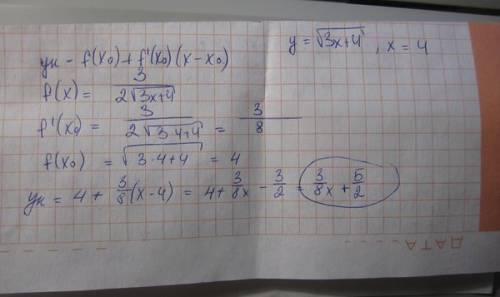 y = √(3x+4) , x = 4
yк - f(x₀) + f'(x₀)(x - x₀)
f(x) = 3/(2√(3x+4))
f'(x₀) = 3/(2√(3·4+4)) = 3/8
f(x₀) = √(3·4+4) = 4
yк = 4 + 3/8(x-4) = 4 + 3/8x - 3/2 = 3/8x + 5/2
ДАТА